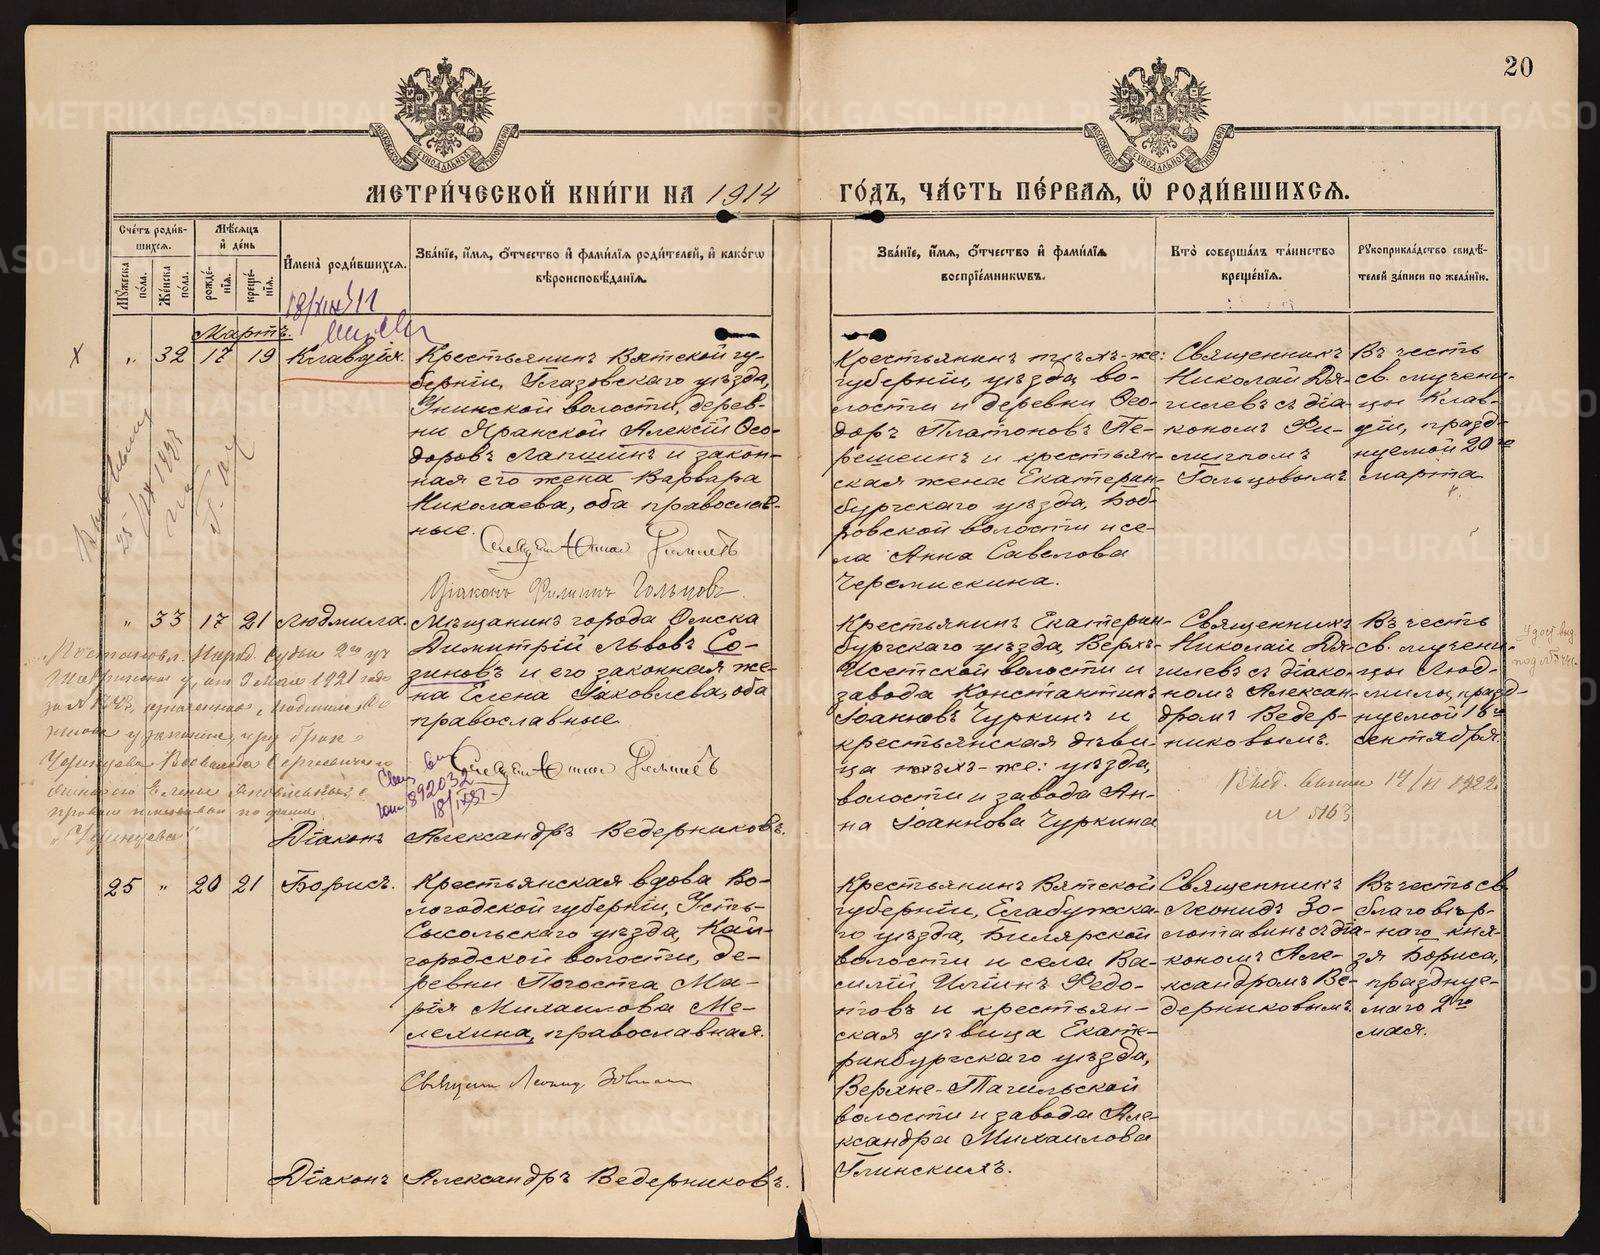 20
МЕТРИ́ЧЕСКОЙ КНИ́ГИ НА 1914 ГО́ДЪ, ЧА́СТЬ ПЕ́РВАЯ, Ѡ҆ РОДИ́ВШИХСЯ.
Сче́тъ роди́в-
шихся.
Мꙋ́жеска по́ла.
Же́нска по́ла.
Мѣ́сяцъ и҆ де́нь
рожде́-
нїя.
креще́-
нїя.
И҆мена̀ роди́вшихся.
Зва́нїе, и҆́мя, ѻ҆́тчество и҆ фами́лїя роди́телей, и҆ како́гѡ
вѣроисповѣ́данїя.
Зва́нїе, и҆́мя, ѻ҆́тчество и҆ фами́лїя
воспрїе́мникѡвъ.
Кто̀ соверша́лъ та́инство
креще́нїя.
Рꙋкоприкла́дство свидѣ́-
телей за́писи по жела́нїю.
Мартъ.
„ 32 17 19 Клавдія.
Крестьянинъ Вятской гу-
берніи, Глазовскаго уѣзда,
Унинской волости, дерев-
ни Яранской Алексій Ѳео-
доровъ Лапшинъ и закон-
ная его жена Варвара
Николаева, оба православ-
ные.
Діаконъ Филиппъ Гольцовъ.
Крестьянинъ тѣхъ-же:
губерніи, уѣзда, во-
лости и деревни Ѳео-
доръ Платоновъ Пе-
решеинъ и крестьян-
ская жена Екатерин-
бургскаго уѣзда, Боб-
ровской волости и се-
ла Анна Савелова
Черемискина.
Священникъ
Николай Дя-
гилевъ съ діа-
кономъ Фи-
липпомъ
Гольцовымъ
Въ честь
св. мучени-
цы Клав-
діи, празд-
нуемой 20го
марта
„ 33 17 21 Людмила.
Мѣщанинъ города Омска
Димитрій Львовъ Со-
зиновъ и его законная же-
на Елена Яковлева, оба
православные
Діаконъ Александръ Ведерниковъ.
Крестьянинъ Екатерин-
бургскаго уѣзда, Верхъ-
Исетской волости и
завода Константинъ
Іоанновъ Чуркинъ и
крестьянская дѣви-
ца тѣхъ-же: уѣзда,
волости и завода Ан-
на Іоаннова Чуркина
Священникъ
Николай Дя-
гилевъ съ діако-
номъ Алексан-
дромъ Ведер-
никовымъ.
Въ честь
св. мучени-
цы Люд-
милы, празд-
нуемой 16го
сентября.
892032
14/VI 1922
№ 5163
25 „ 20 21 Борисъ.
Крестьянская вдова Во-
логодской губерніи, Усть-
Сысольскаго уѣзда, Кай-
городской волости, де-
ревни Погоста, Ма-
рія Михаилова Ме-
лехина, православная.
Діаконъ Александръ Ведерниковъ.
Крестьянинъ Вятской
губерніи, Елабужска-
го уѣзда, Билярской
волости и села Ва-
силій Иліинъ Федо-
товъ и крестьян-
ская дѣвица Екате-
ринбургскаго уѣзда,
Верхне-Тагильской
волости и завода Але-
ксандра Михаилова
Глинскихъ.
Священникъ
Леонидъ Зо-
лотавинъ съ діа-
кономъ Але-
ксандромъ Ве-
дерниковымъ.
Въ честь св.
благовѣр-
наго кня-
зя Бориса,
праздпуе-
маго 2го
мая.
METRIKI.GASO-URAL.RU